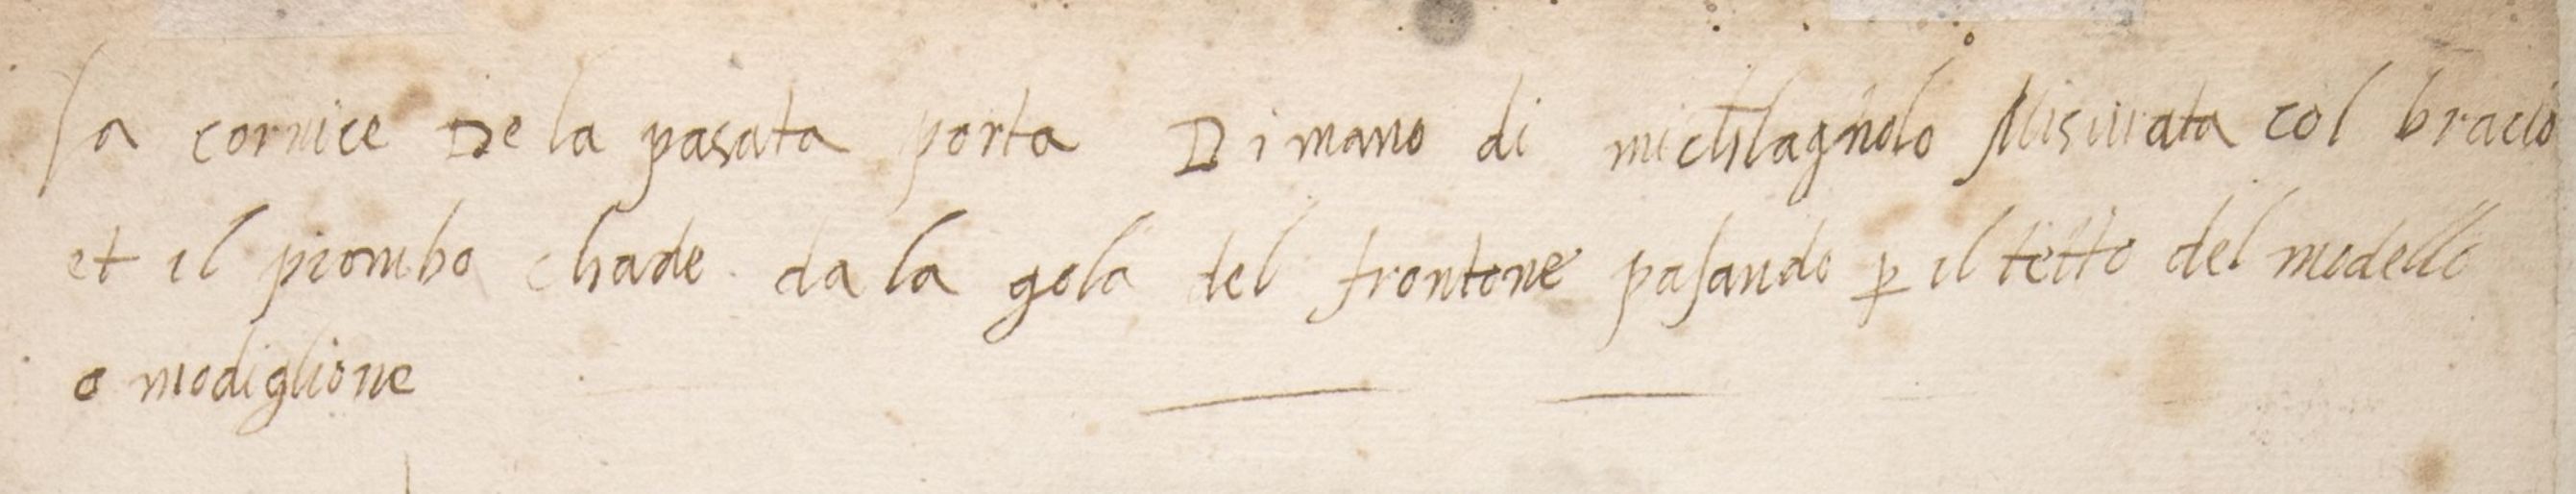 la cornice De la pasata porta Di mano di michelagnolo Misurata col bracio
et il piombo chade da la gola del frontone pasando p il tetto del modello
o modiglione